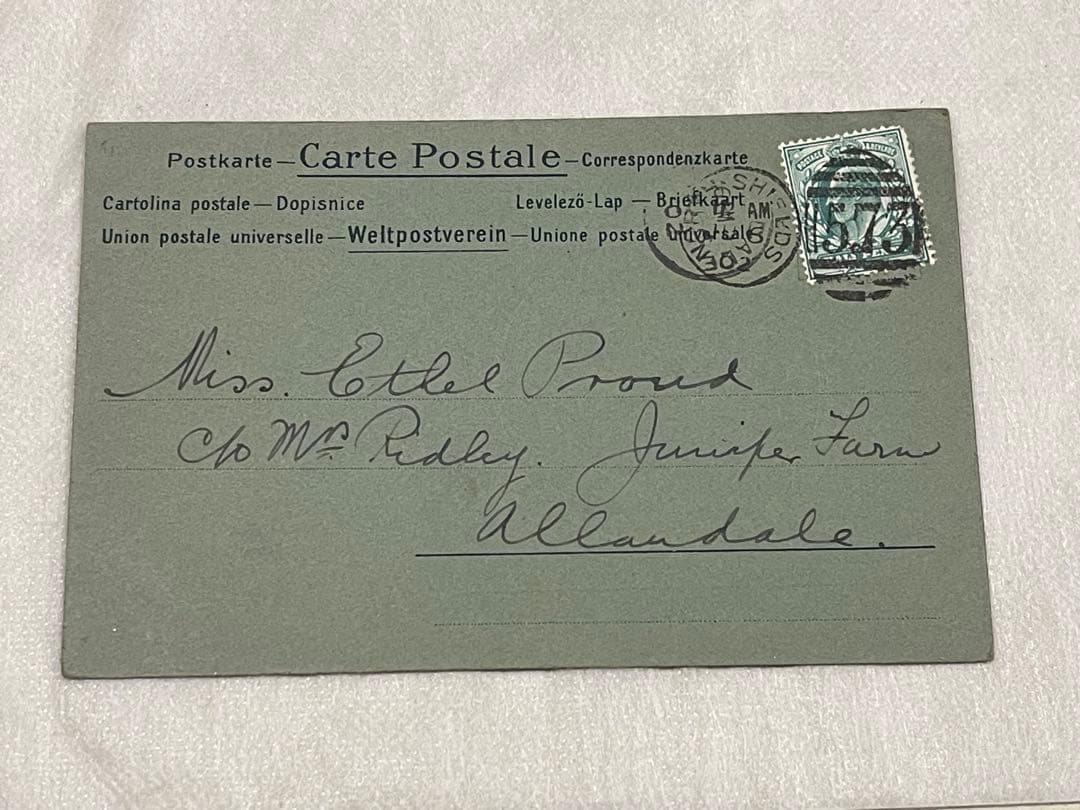 Postkarte — Carte Postale — Correspondenzkarte
Cartolina postale — Dopisnice Levelező-Lap — Briefkaart
Union postale universelle — Weltpostverein — Unione postale universale
POSTAGE & REVENUE
SHIELDS
AM
573
Miss. Ethel Proud
c/o Mrs Ridley. Juniper Farm
Allandale.